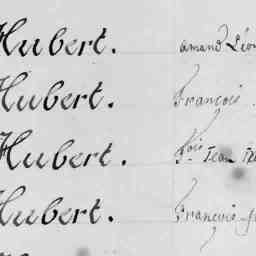 Hubert. amand Léon
Hubert. François
Hubert. fois Jean
Hubert. François